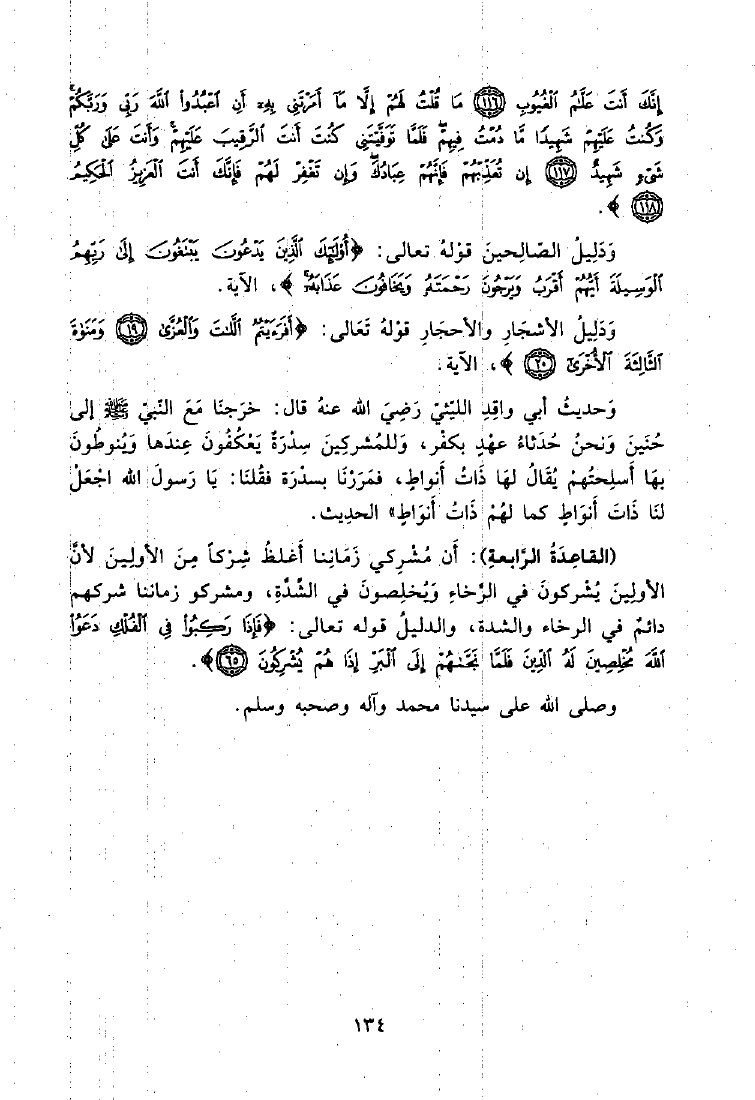 إِنَّكَ أَنتَ عَلَّٰمُ ٱلْغُيُوبِ ﴿١١٦﴾ مَا قُلْتُ لَهُمْ إِلَّا مَآ أَمَرْتَنِى بِهِۦٓ أَنِ ٱعْبُدُوا۟ ٱللَّهَ رَبِّى وَرَبَّكُمْ ۚ
وَكُنتُ عَلَيْهِمْ شَهِيدًا مَّا دُمْتُ فِيهِمْ ۖ فَلَمَّا تَوَفَّيْتَنِى كُنتَ أَنتَ ٱلرَّقِيبَ عَلَيْهِمْ ۚ وَأَنتَ عَلَىٰ كُلِّ
شَىْءٍ شَهِيدٌ ﴿١١٧﴾ إِن تُعَذِّبْهُمْ فَإِنَّهُمْ عِبَادُكَ ۖ وَإِن تَغْفِرْ لَهُمْ فَإِنَّكَ أَنتَ ٱلْعَزِيزُ ٱلْحَكِيمُ
﴿١١٨﴾ ﴾.
وَدَلِيلُ الصّالِحينَ قَوْلهُ تعالى: ﴿أُو۟لَٰٓئِكَ ٱلَّذِينَ يَدْعُونَ يَبْتَغُونَ إِلَىٰ رَبِّهِمُ
ٱلْوَسِيلَةَ أَيُّهُمْ أَقْرَبُ وَيَرْجُونَ رَحْمَتَهُۥ وَيَخَافُونَ عَذَابَهُۥٓ ۚ ﴾، الآية.
وَدَلِيلُ الأشجَارِ والأحجَارِ قولهُ تَعَالى: ﴿أَفَرَءَيْتُمُ ٱللَّٰتَ وَٱلْعُزَّىٰ ﴿١٩﴾ وَمَنَوٰةَ
ٱلثَّالِثَةَ ٱلْأُخْرَىٰٓ ﴿٢٠﴾ ﴾، الآية.
وَحديثُ أبي واقِدِ الليْثيّ رَضِيَ الله عنهُ قال: خرَجنَا مَعَ النّبيّ ﷺ إلى
حُنَينَ وَنحنُ حُدَثاءُ عهْدٍ بكفْر، وَللمُشركينَ سِدْرَةٌ يَعْكُفُونَ عِندَها وَيُنوطُونَ
بهَا أَسلِحتُهمْ يُقَالُ لهَا ذَاتُ أنواطٍ، فمَرَرْنَا بسدْرَة فقُلنَا: يَا رَسولَ الله اجعَلْ
لنَا ذَاتَ أَنوَاطٍ كما لهُمْ ذَاتُ أنوَاطٍ» الحديث.
(القاعِدَةُ الرَّابعةِ): أَن مُشْرِكي زَمَانِنا أَغلظُ شِرْكاً مِنَ الأولِينَ لأنَّ
الأولِينَ يُشْركونَ في الرَّخاءِ وَيُخلِصونَ في الشّدَّةِ، ومشركو زماننا شركهم
دائمٌ في الرخاء والشدة، والدليلُ قوله تعالى: ﴿فَإِذَا رَكِبُوا۟ فِى ٱلْفُلْكِ دَعَوُا۟
ٱللَّهَ مُخْلِصِينَ لَهُ ٱلدِّينَ فَلَمَّا نَجَّىٰهُمْ إِلَى ٱلْبَرِّ إِذَا هُمْ يُشْرِكُونَ ﴿٦٥﴾﴾.
وصلى الله على سيدنا محمد وآله وصحبه وسلم.
١٣٤